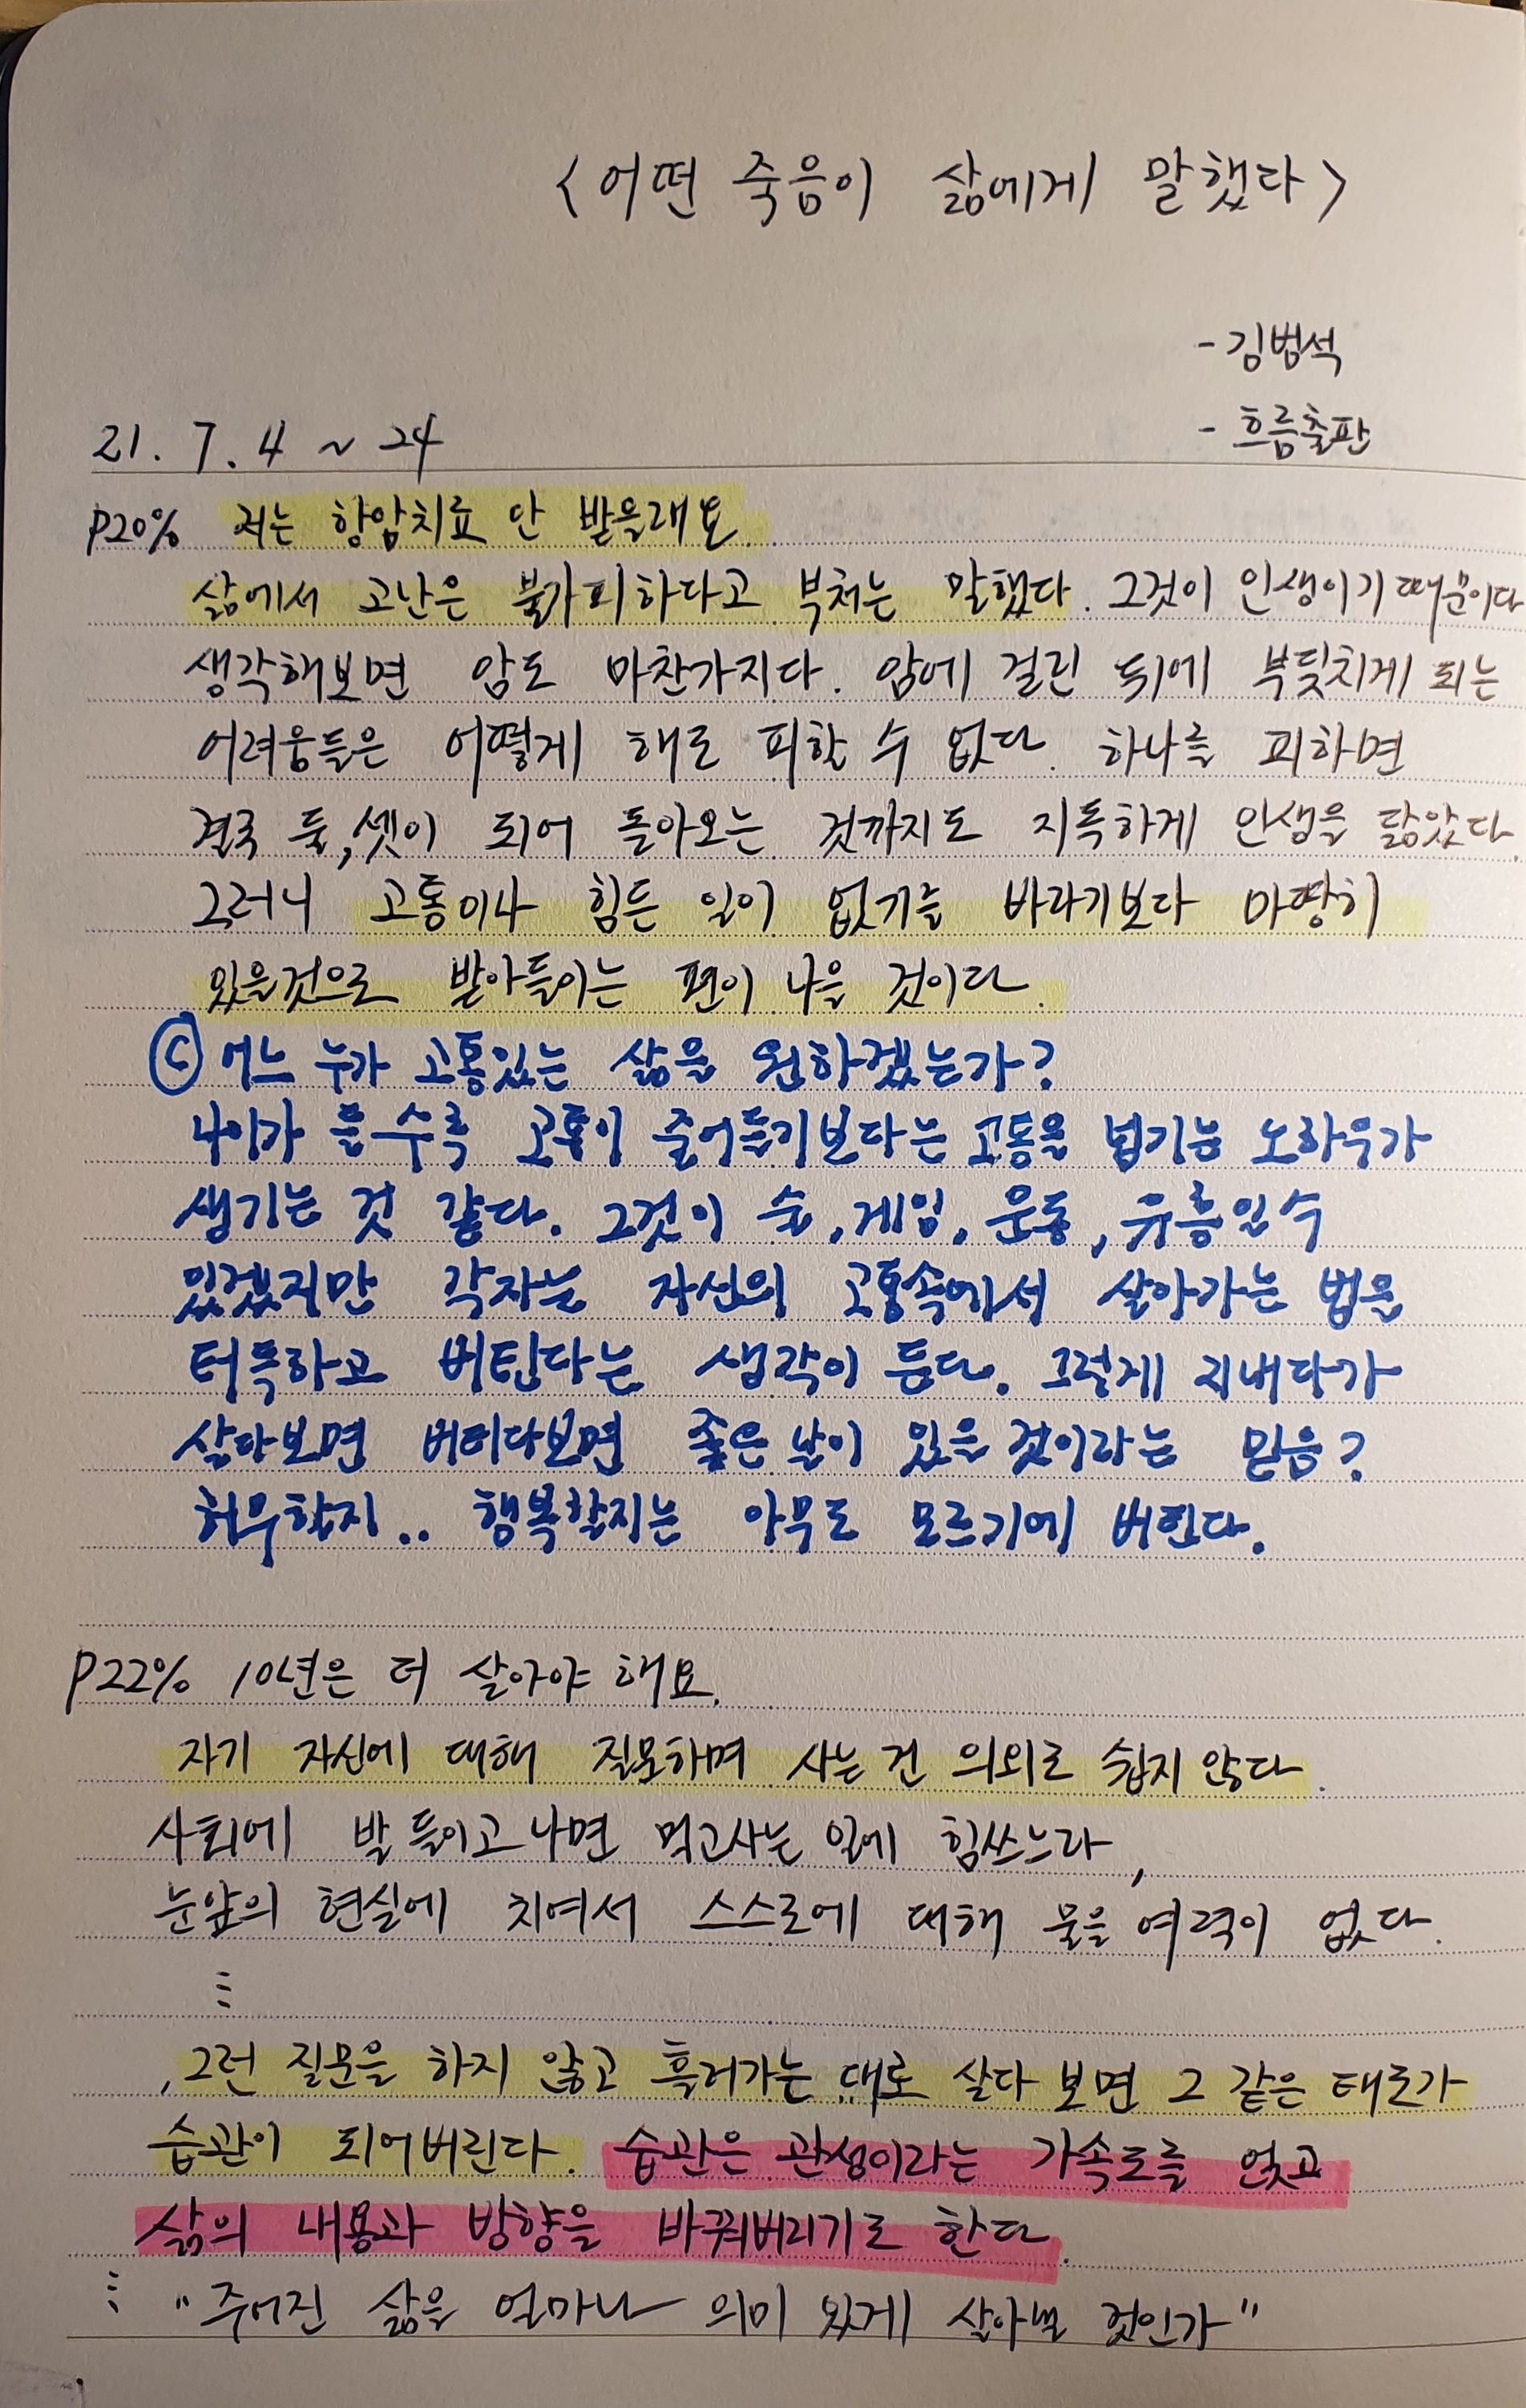 <어떤 죽음이 삶에게 말했다>
- 김범석
- 흐름출판
21. 7. 4 ~ 24
P20% 저는 항암치료 안 받을래요.
삶에서 고난은 불가피하다고 부처는 말했다. 그것이 인생이기 때문이다
생각해보면 암도 마찬가지다. 암에 걸린 뒤에 부딪치게 되는
어려움들은 어떻게 해도 피할 수 없다. 하나를 피하면
결국 둘, 셋이 되어 돌아오는 것까지도 지독하게 인생을 닮았다.
그러니 고통이나 힘든 일이 없기를 바라기보다 마땅히
있을것으로 받아들이는 편이 나을 것이다.
ⓒ 어느 누가 고통있는 삶을 원하겠는가?
나이가 들수록 고통이 줄어들기보다는 고통을 넘기는 노하우가
생기는 것 같다. 그것이 술, 게임, 운동, 유흥일수
있겠지만 각자는 자신의 고통속에서 살아가는 법을
터득하고 버틴다는 생각이 든다. 그렇게 지내다가
살다보면 버티다보면 좋은 날이 있을 것이라는 믿음?
허무할지.. 행복할지는 아무도 모르기에 버틴다.
P22% 10년은 더 살아야 해요.
자기 자신에 대해 질문하며 사는 건 의외로 쉽지 않다.
사회에 발 들이고 나면 먹고사는 일에 힘쓰느라,
눈앞의 현실에 치여서 스스로에 대해 물을 여력이 없다.
⋮
, 그런 질문을 하지 않고 흘러가는 대로 살다 보면 그 같은 태도가
습관이 되어버린다. 습관은 관성이라는 가속도를 얻고
삶의 내용과 방향을 바꿔버리기도 한다.
⋮ "주어진 삶을 얼마나 의미 있게 살아낼 것인가"